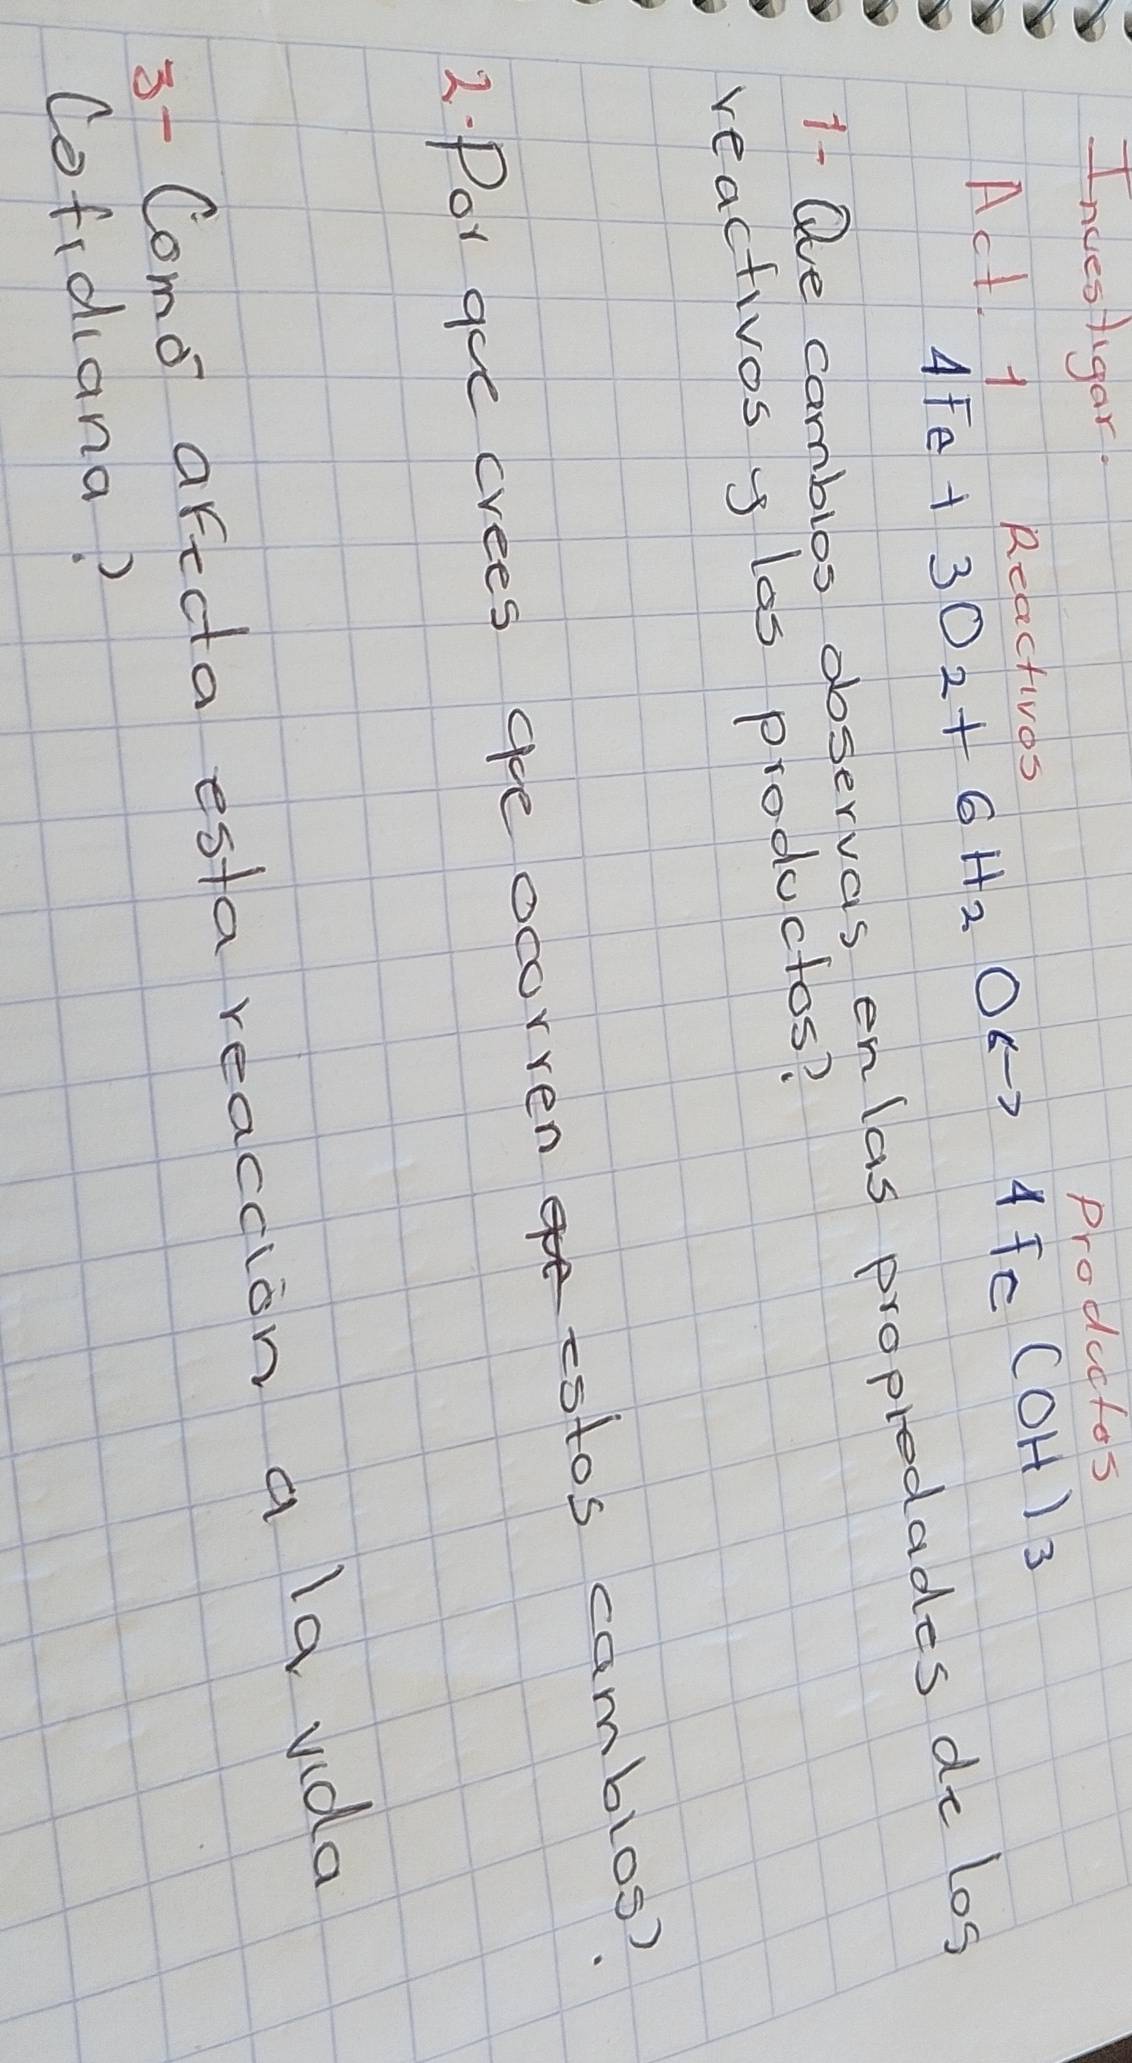 Investigar.
Act. 1 Reactivos Productos
4Fe + 3O2 + 6H2O ↔ 4Fe(OH)3
1- Que cambios observas en las propiedades de los
reactivos y los productos?
2.- Por que crees que ocurren que estos cambios?
3- Como afecta esta reacción a la vida
Cotidiana?